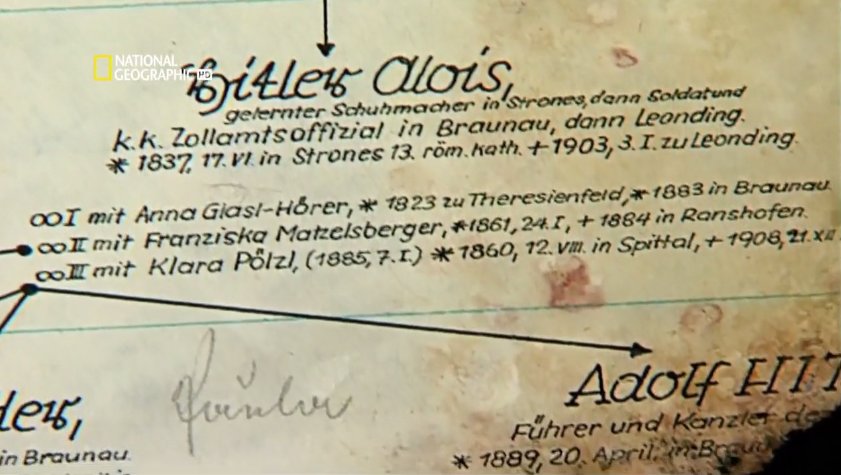 NATIONAL
GEOGRAPHIC HD
Hitler Alois,
gelernter Schuhmacher in Strones, dann Soldat und
k.k. Zollamtsoffizial in Braunau, dann Leonding.
* 1837, 17. VI. in Strones 13. röm. kath. + 1903, 3. I. zu Leonding.
∞ I mit Anna Glasl-Hörer, * 1823 zu Theresienfeld, * 1883 in Braunau.
∞ II mit Franziska Matzelsberger, * 1861, 24. I, + 1884 in Ranshofen.
∞ III mit Klara Pölzl, (1885, 7. I.) * 1860, 12. VIII. in Spittal, + 1908, 21. XII
Adolf HIT
ler,
Führer und Kanzler de
in Braunau.
* 1889, 20. April, in Brau